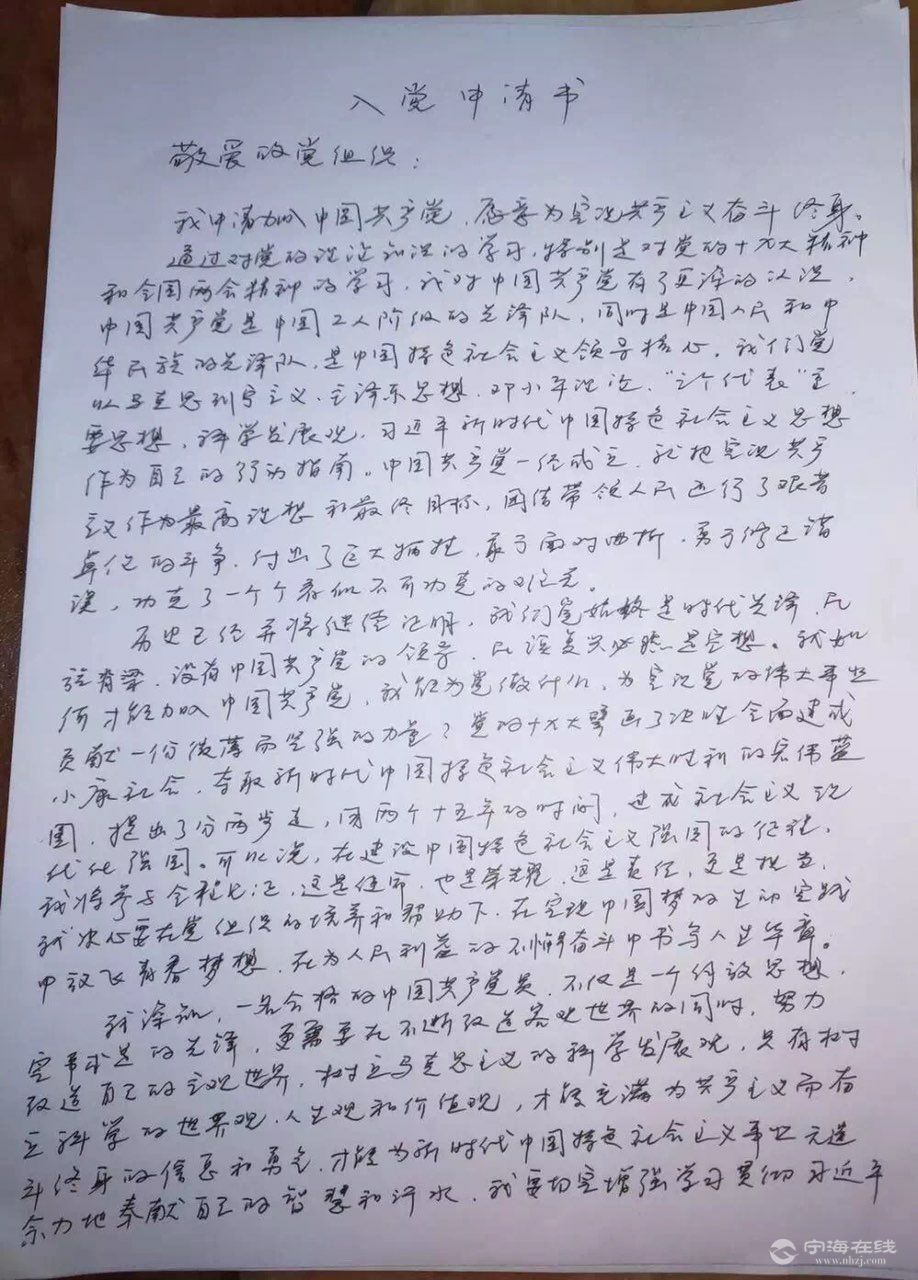 入党申请书
敬爱的党组织：
我申请加入中国共产党，愿意为实现共产主义奋斗终身。
通过对党的理论知识的学习，特别是对党的十九大精神
和全国两会精神的学习，我对中国共产党有了更深的认识，
中国共产党是中国工人阶级的先锋队，同时是中国人民和中
华民族的先锋队，是中国特色社会主义领导核心，我们党
以马克思列宁主义、毛泽东思想、邓小平理论、“三个代表”重
要思想，科学发展观，习近平新时代中国特色社会主义思想
作为自己的行动指南。中国共产党一经成立，就把实现共产
主义作为最高理想和最终目标，团结带领人民进行了艰苦
卓绝的斗争，付出了巨大牺牲，敢于面对曲折，勇于修正错
误，功克了一个个看似不可功克的难关。
历史已经并将继续证明，我们党始终是时代先锋，民
族脊梁，没有中国共产党的领导，民族复兴必然是空想。我如
何才能加入中国共产党，我能为党做什么，为实现党的伟大事业
贡献一份微薄而坚强的力量？党的十九大擘画了决胜全面建成
小康社会，夺取新时代中国特色社会主义伟大胜利的宏伟蓝
图，提出了分两步走，用两个十五年的时间，建成社会主义现
代化强国。可以说，在建设中国特色社会主义强国的征程，
我将参与全程见证，这是使命，也是荣耀，这是责任，更是担当，
我决心要在党组织的培养和帮助下，在实现中国梦的生动实践
中放飞青春梦想，在为人民利益的不懈奋斗中书写人生华章。
我深知，一名合格的中国共产党员，不仅是一个解放思想，
实事求是的先锋，更需要在不断改造客观世界的同时，努力
改造自己的主观世界，树立马克思主义的科学发展观，只有树
立科学的世界观、人生观和价值观，才能充满为共产主义而奋
斗终身的信息和勇气，才能为新时代中国特色社会主义事业无遗
余力地奉献自己的智慧和汗水，我要切实增强学习贯彻习近平
宁海在线
www.nhzj.com